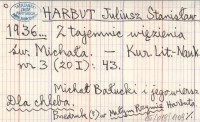 HARBUT Juliusz Stanisław
1936... Z tajemnic więzienia
św. Michała. — Kur. Lit.-Nauk.
nr 3 (20 I): 43.
Michał Bałucki i jego wiersz
Dla chleba.
w Harbuta